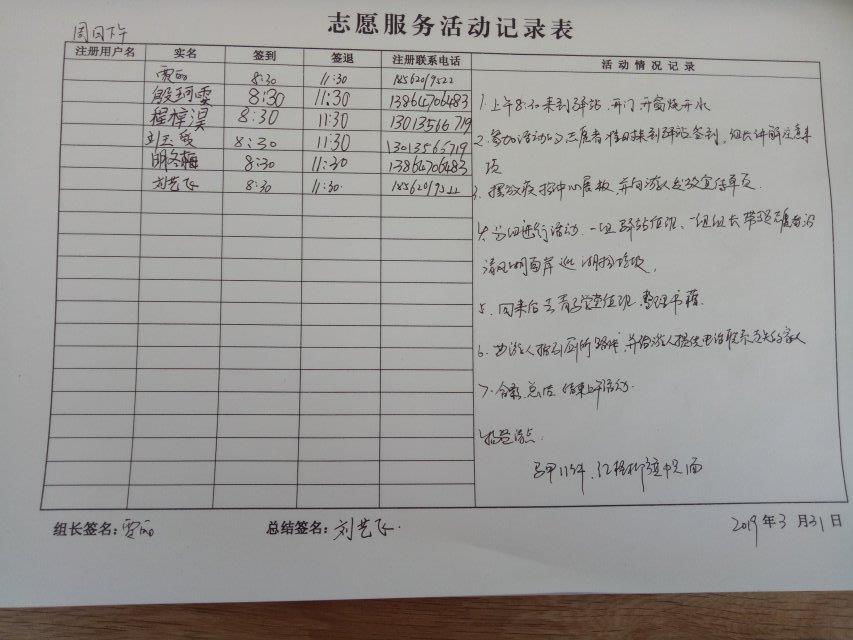 志愿服务活动记录表
周日下午
注册用户名 实名 签到 签退 注册联系电话 活动情况记录
贾丽 8:30 11:30 18562019522
殷珂雯 8:30 11:30 13864706483
程梓淏 8:30 11:30 13013566719
刘玉爱 8:30 11:30 13013566719
明冬梅 8:30 11:30 13864706483
刘艺飞 8:30 11:30 18562019522
1. 上午8:30来到驿站,开门开窗烧开水
2. 参加活动的志愿者相继来到驿站签到,组长讲解注意事
项
3. 摆放疾控中心展板,并向游人发放宣传单页.
4. 分组进行活动.一组驿站值班、一组组长带领志愿者沿
清风湖南岸巡湖捡垃圾.
5. 回来后去青子学堂值班,整理书籍.
6. 为游人指引厕所路线,并给游人提供电话联系走失的家人
7. 合影.总结.结束上午活动.
组长签名:贾丽 总结签名:刘艺飞.
2019年3月31日